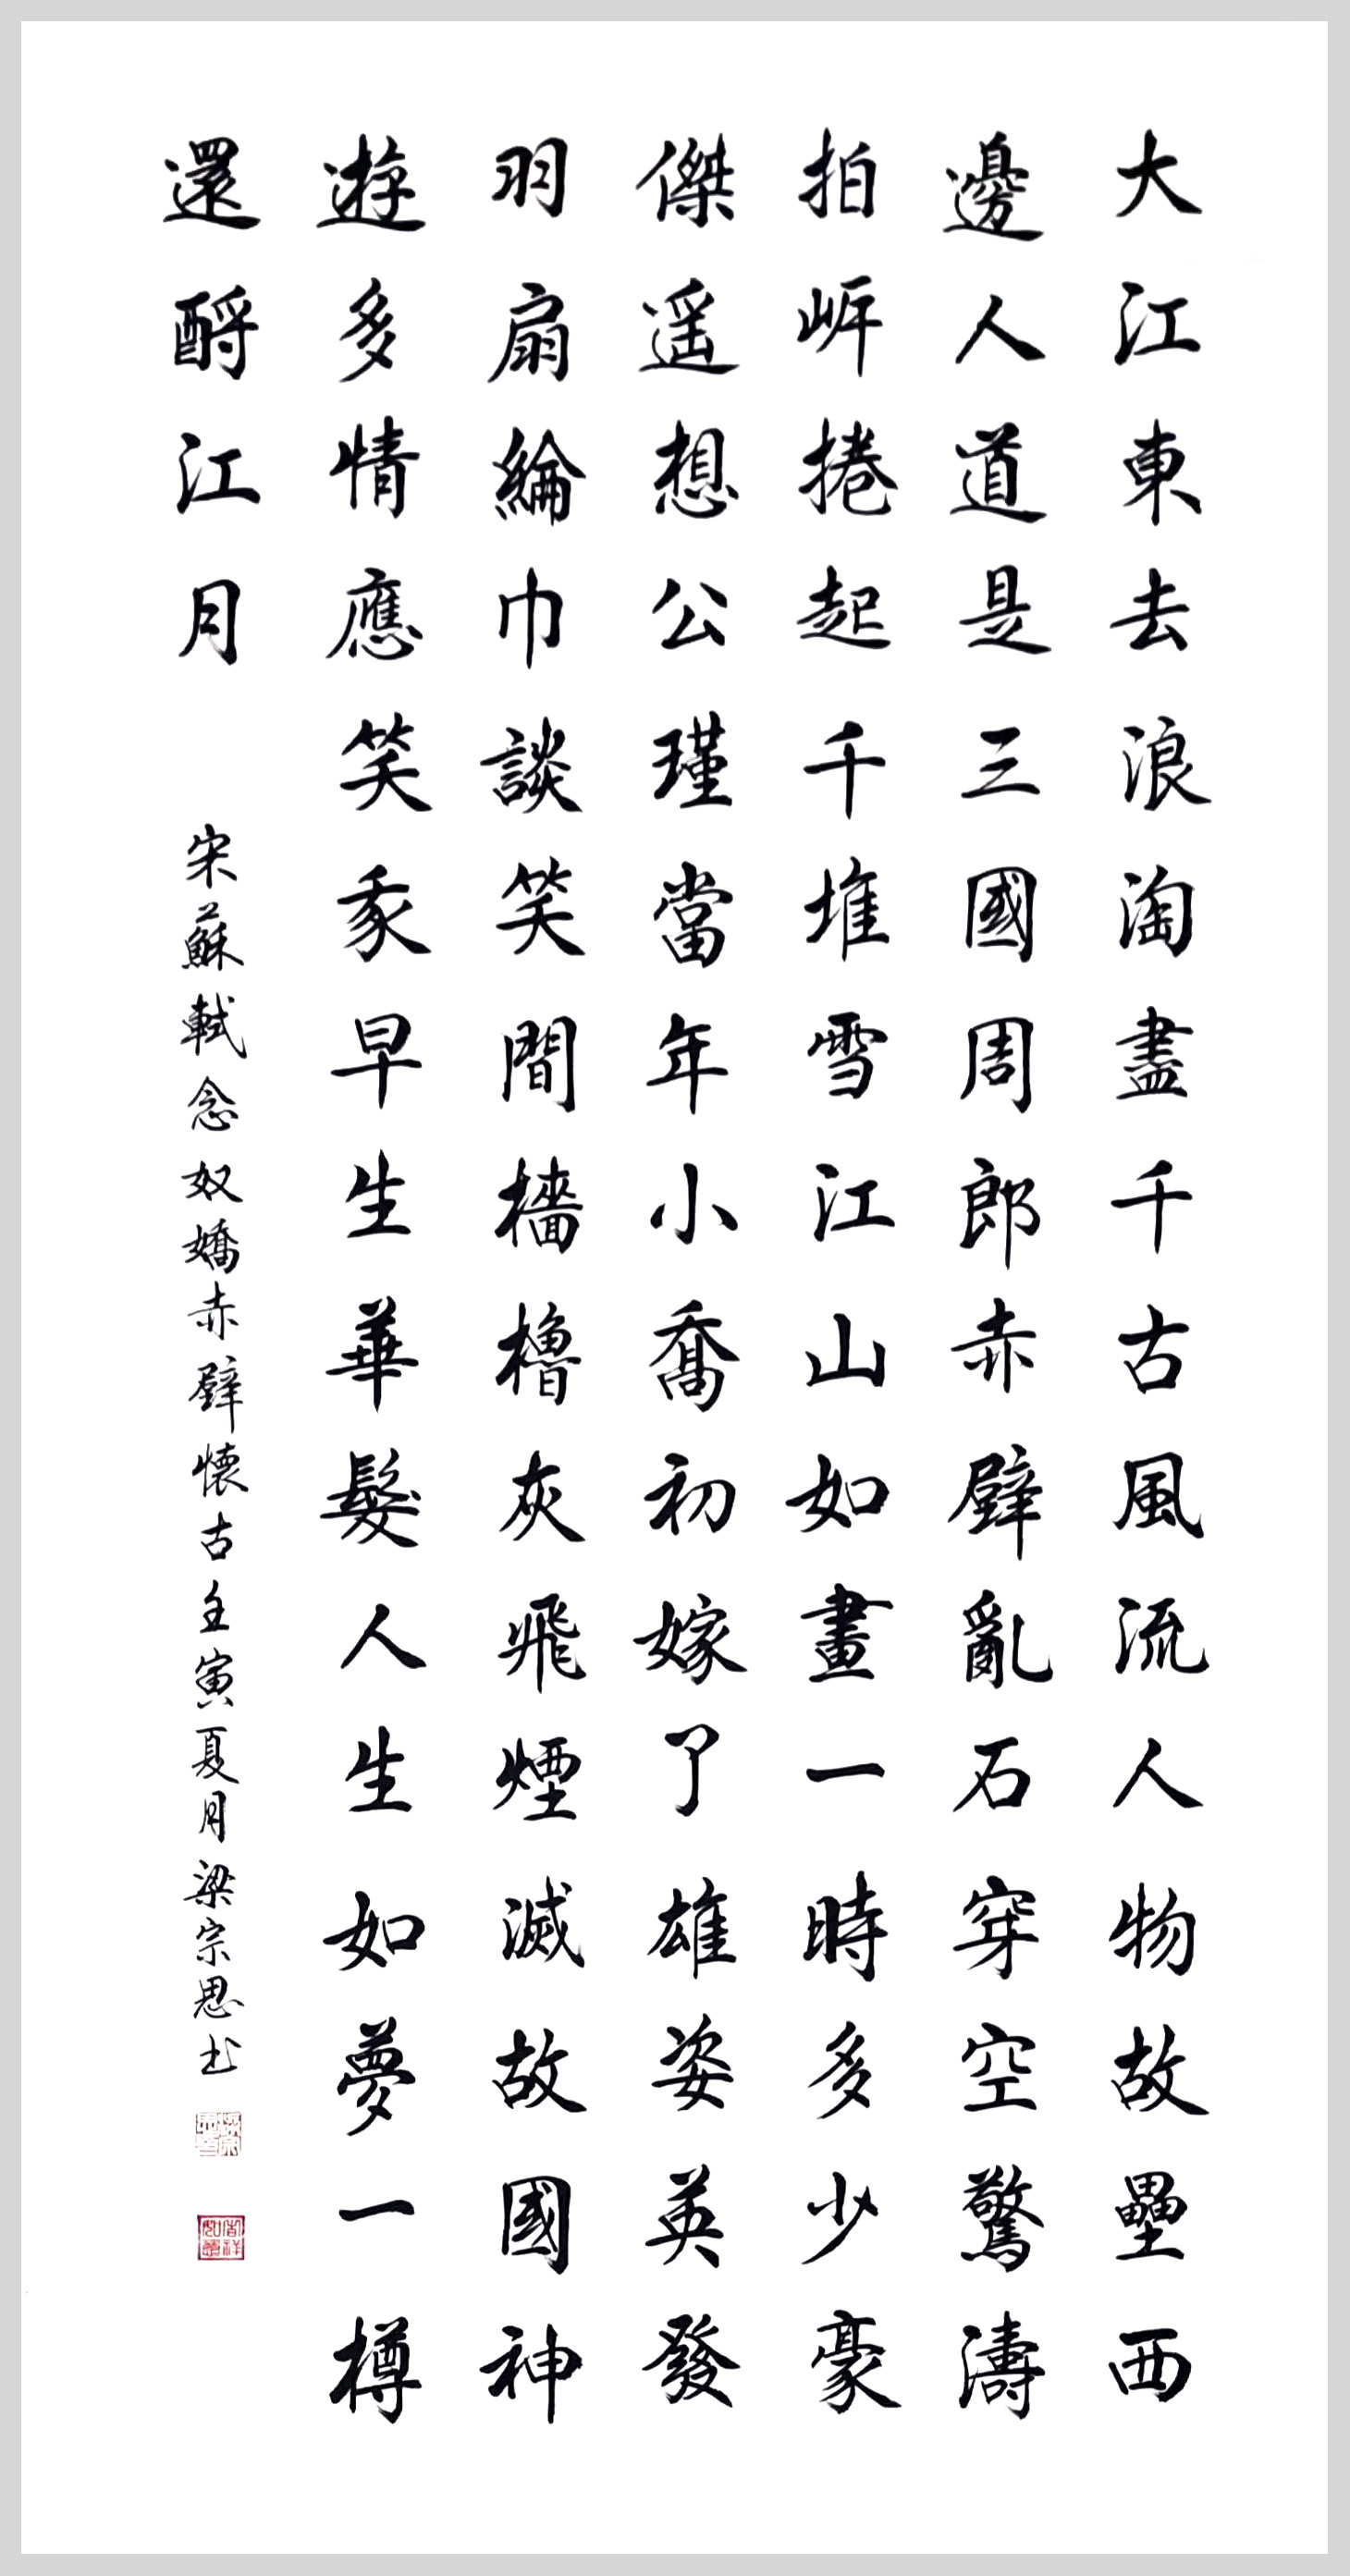 大江東去浪淘盡千古風流人物故壘西
邊人道是三國周郎赤壁亂石穿空驚濤
拍岸捲起千堆雪江山如畫一時多少豪
傑遥想公瑾當年小喬初嫁了雄姿英發
羽扇綸巾談笑間檣櫓灰飛煙滅故國神
遊多情應笑我早生華髮人生如夢一樽
還酹江月
宋蘇軾念奴嬌赤壁懷古壬寅夏月梁宗思书